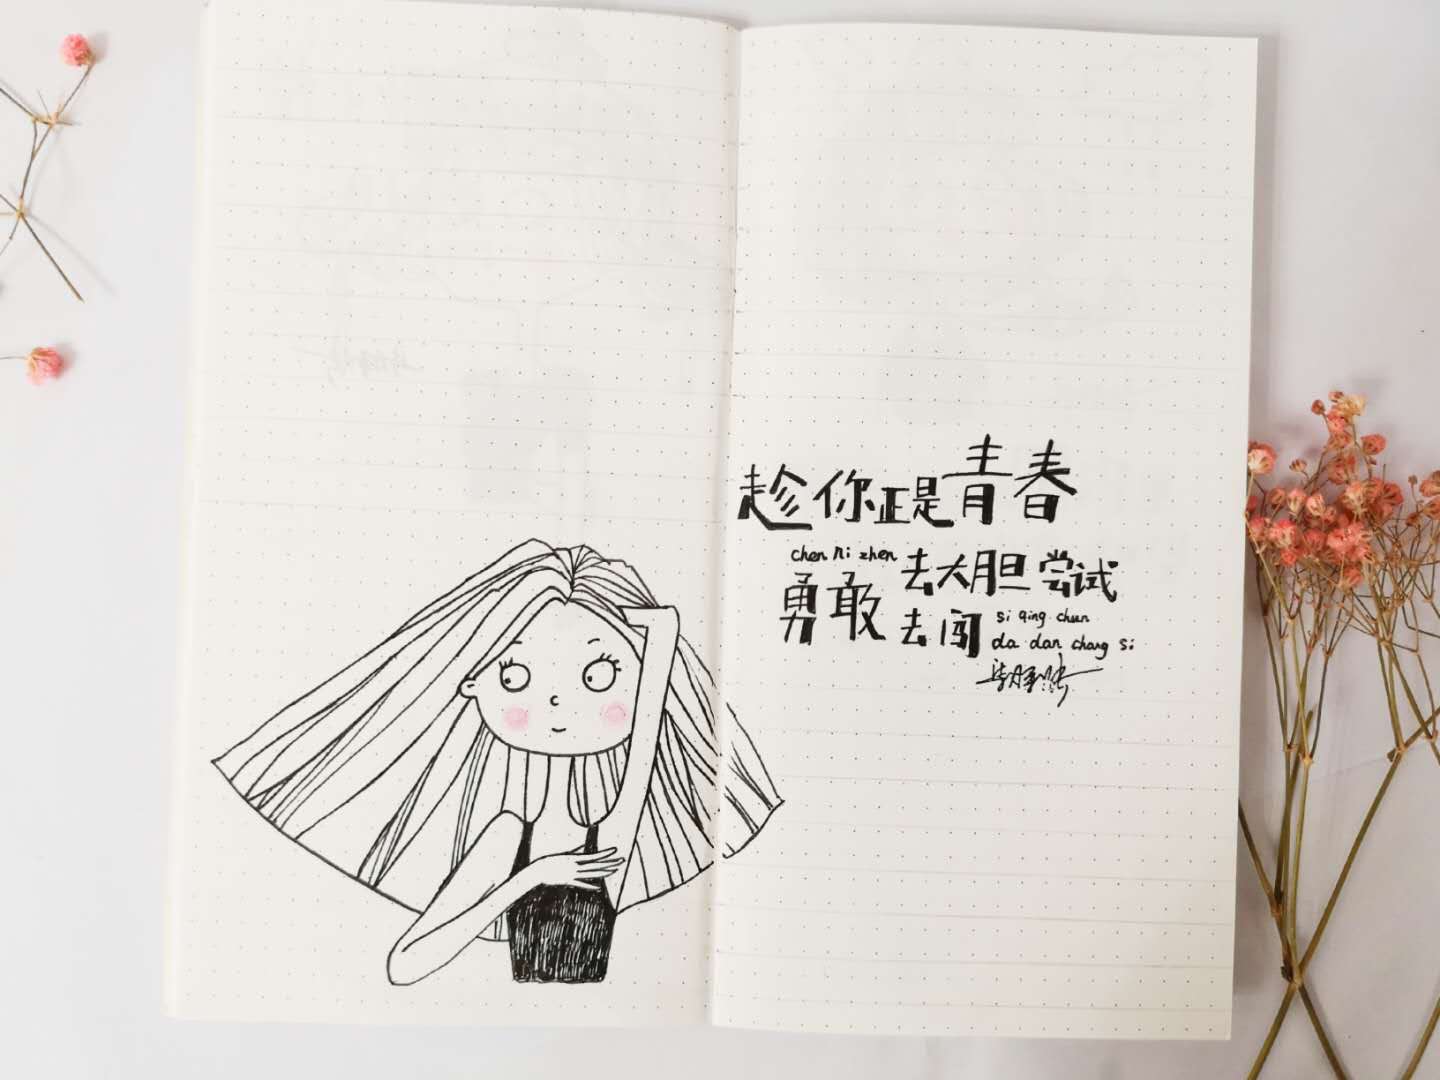 趁你正是青春
chen ni zhen
去大胆尝试
勇敢
去闯
si qing chun
da dan chang si